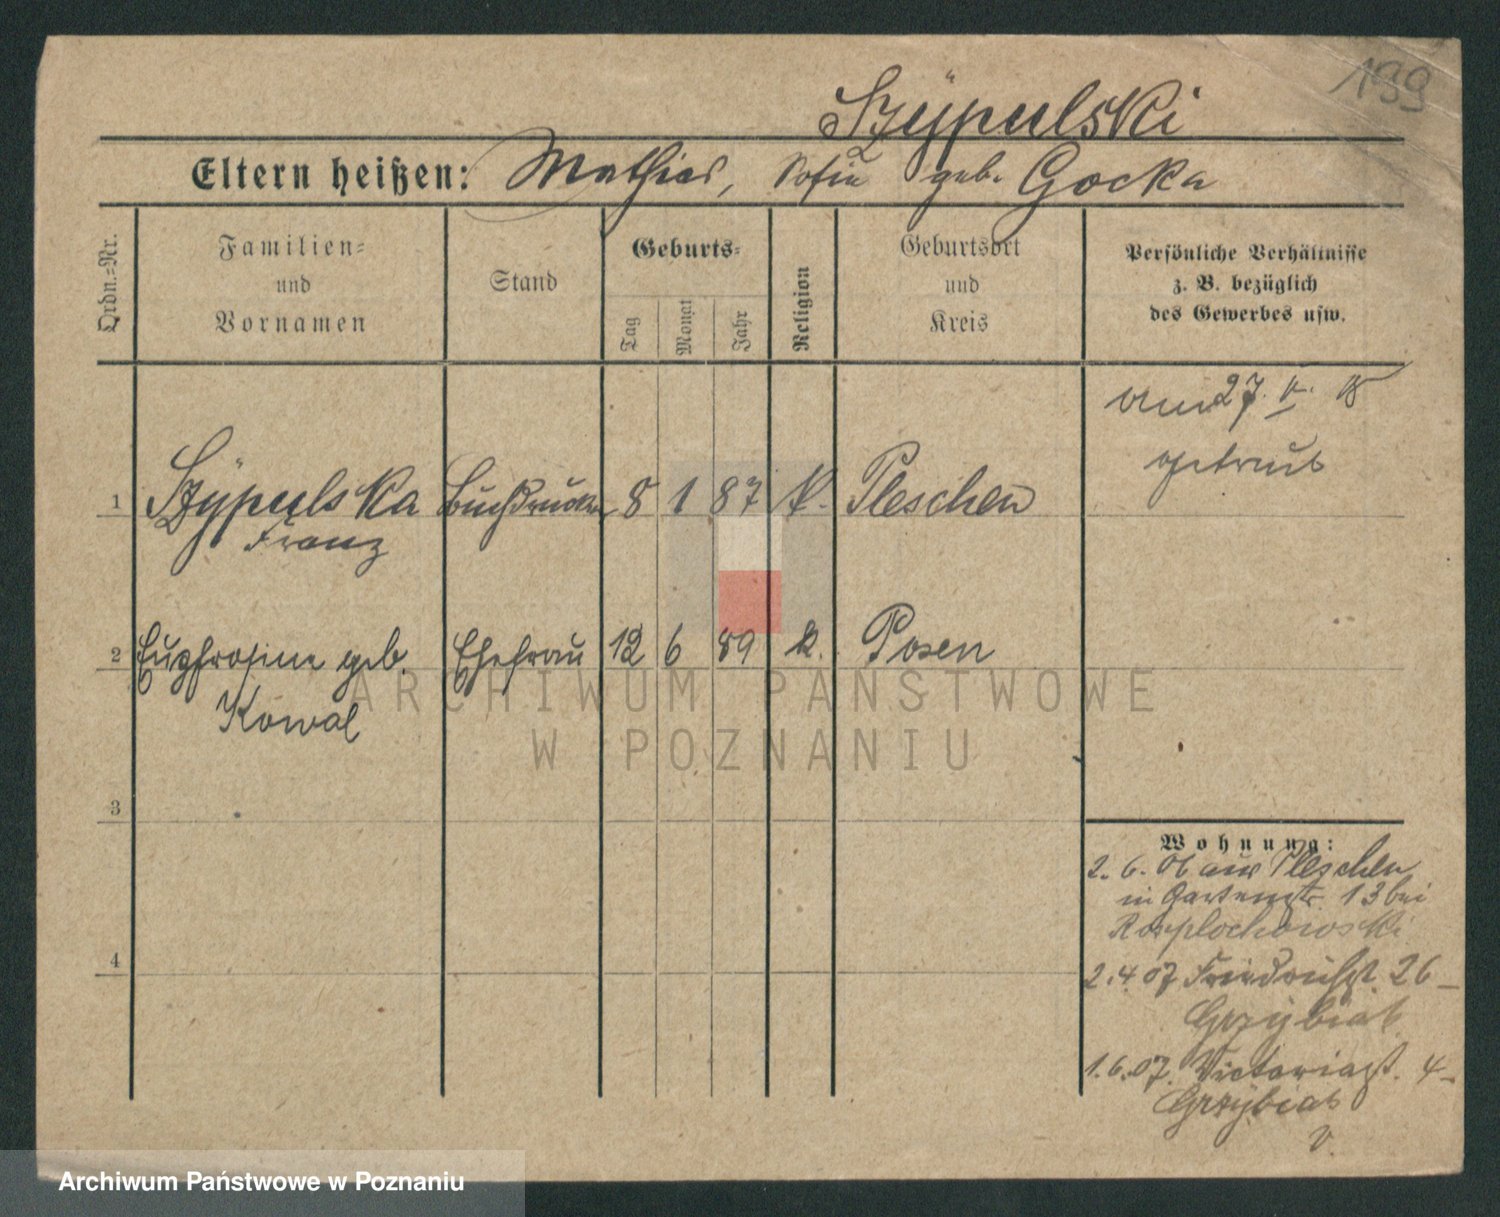 199
Szÿpulski
Eltern heißen: Mathias, Sofie geb. Gocka
Ordn.=Nr.
Familien=
und
Vornamen
Stand
Geburts=
Tag
Monat
Jahr
Religion
Geburtsort
und
Kreis
Persönliche Verhältnisse
z. B. bezüglich
des Gewerbes usw.
am 27. V. 18
getraut
1 Szÿpulska Buchdrucker 8 1 87 k. Pleschen
Franz
2 Euphrosine geb. Ehefrau 12 6 89 k. Posen
Kowal
3
4
Wohnung:
2. 6. 06 aus Pleschen
in Gartenstr. 13 bei
2.4 07 Friedrichst. 26
Grzÿbiak
1.6.07. Victoriast. 4
Grzÿbiak
ARCHIWUM PAŃSTWOWE
W POZNANIU
Archiwum Państwowe w Poznaniu